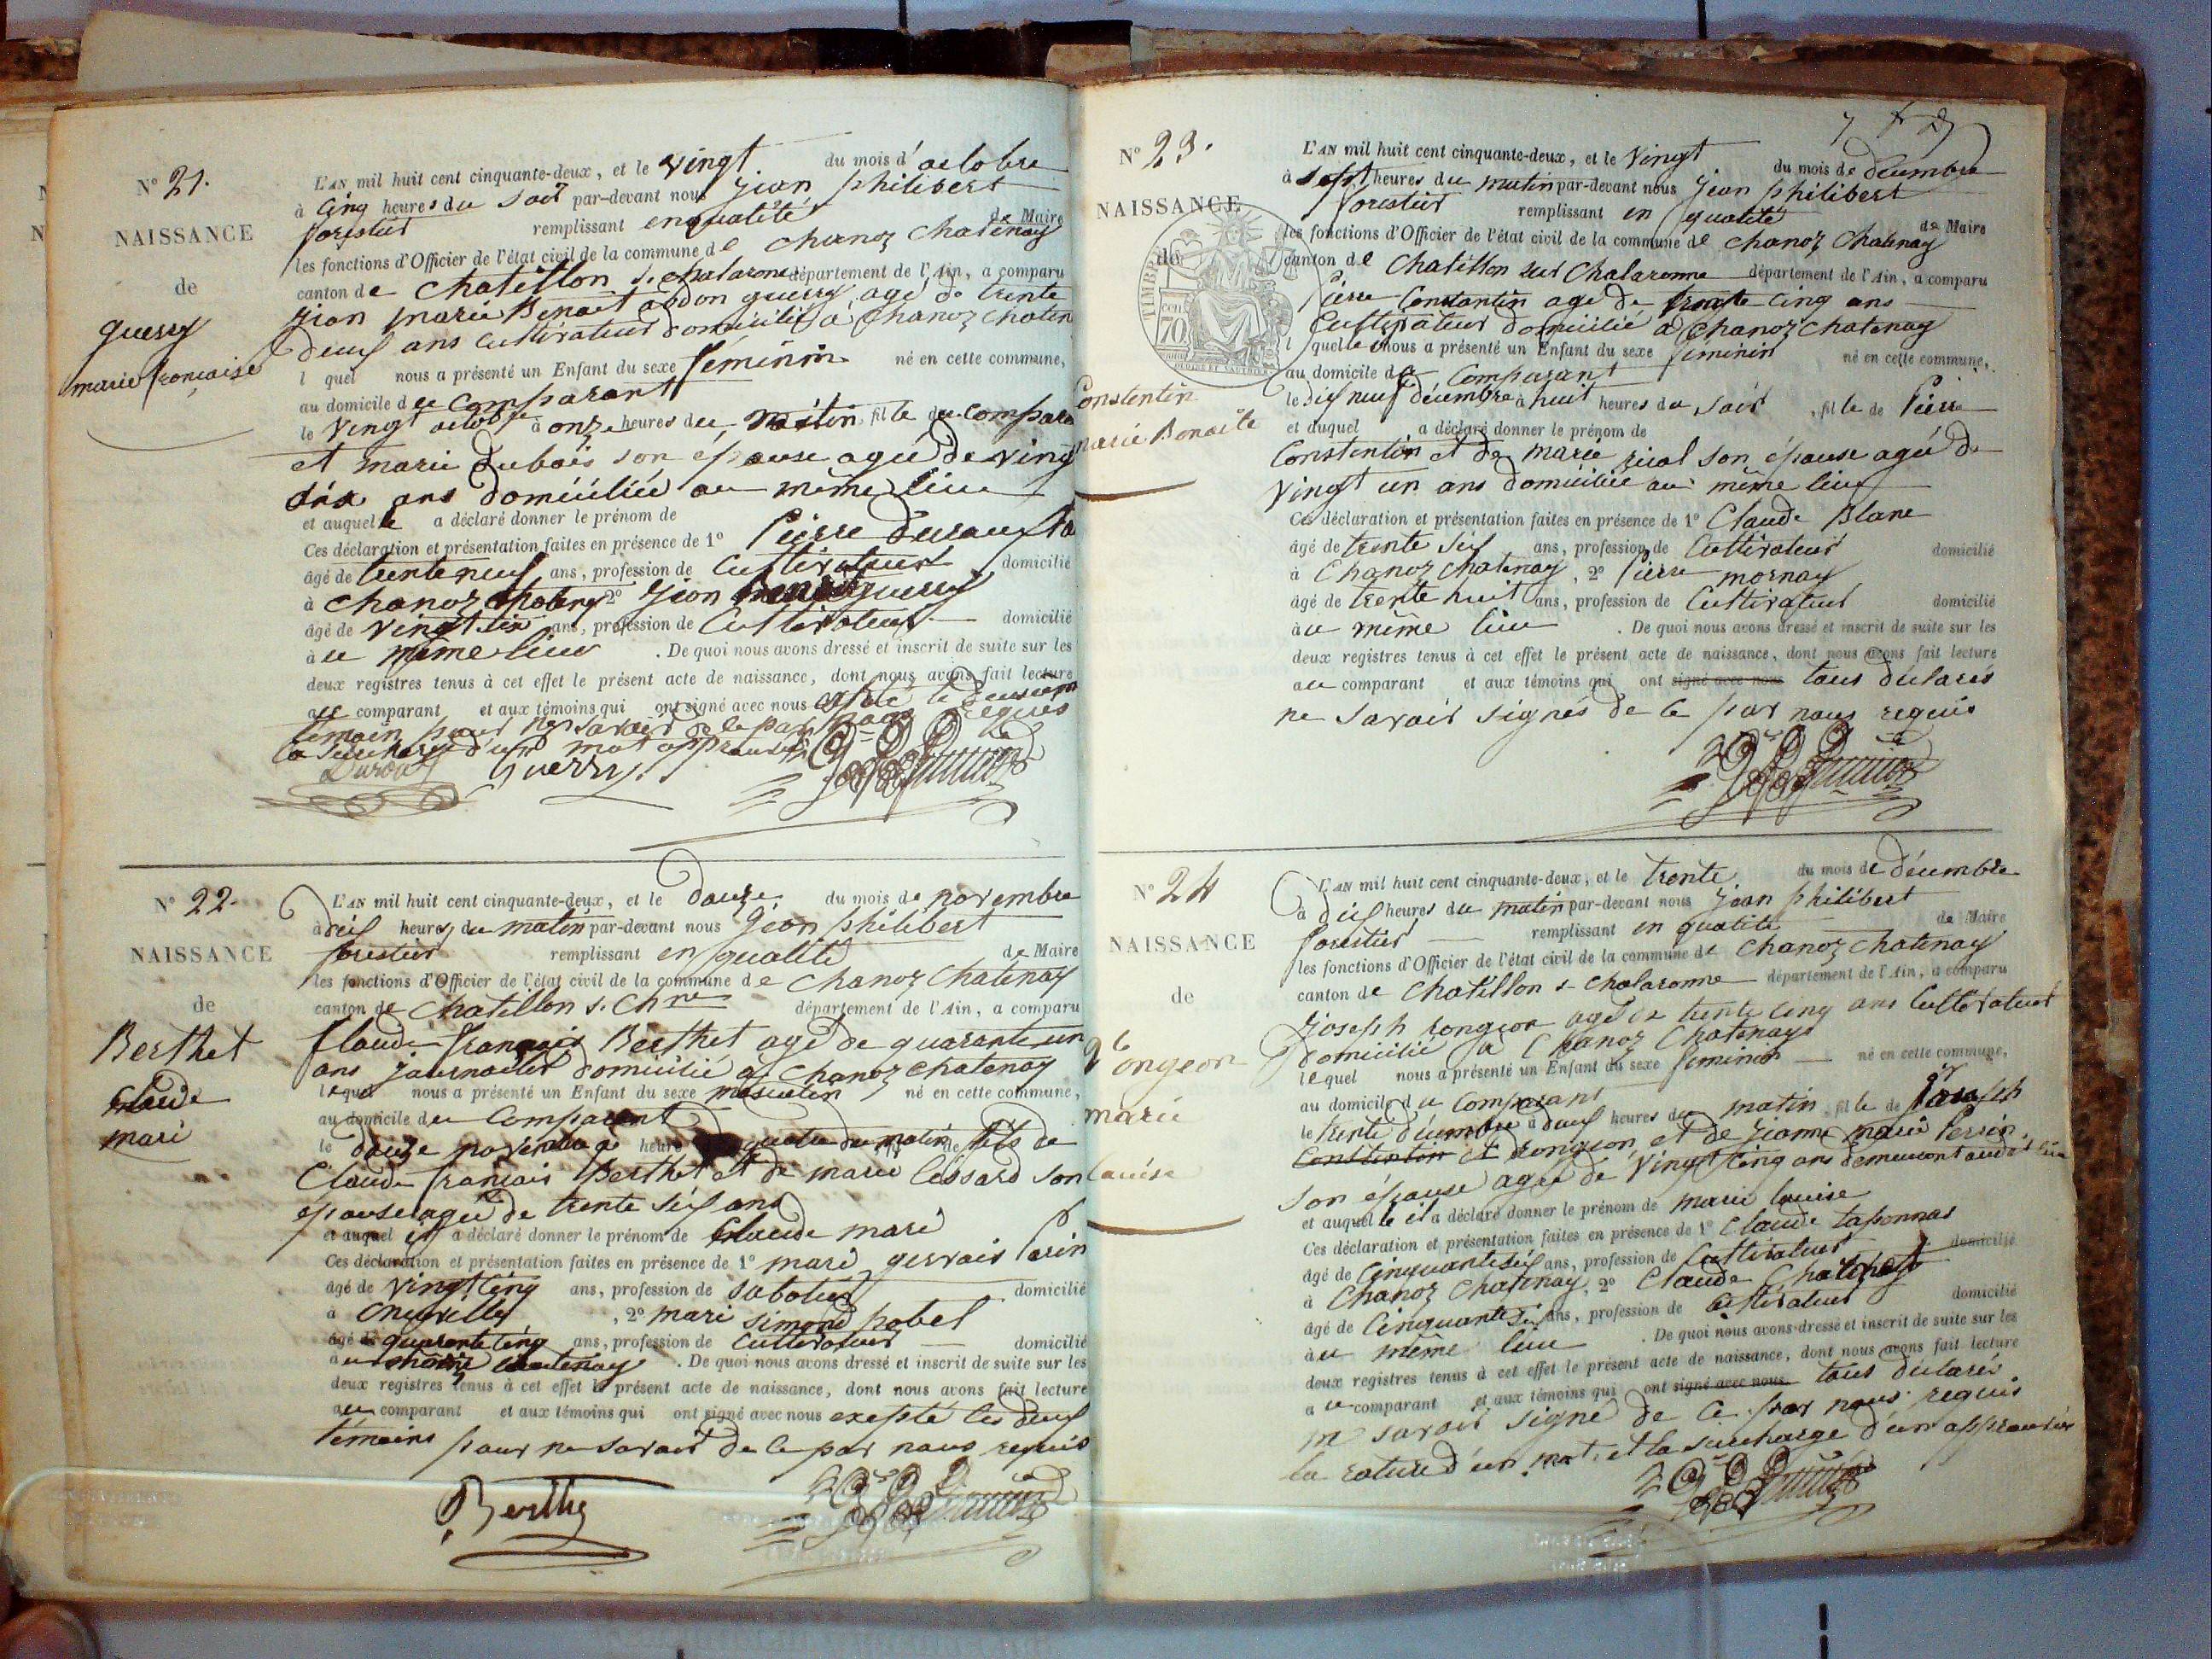 N° 21.
NAISSANCE
de
guerry
marie francaise
L'AN mil huit cent cinquante-deux, et le vingt du mois d'octobre
à cinq heures du soir par-devant nous jean philibert
forestier remplissant en qualité de Maire
les fonctions d'Officier de l'état civil de la commune de chanoz chatenay
canton de chatillon s. chalaronne département de l'Ain, a comparu
jean marie Benoit abdon guerry, agé de trente
deux ans cultivateur domicilié a chanoz chaten
l quel nous a présenté un Enfant du sexe féminin né en cette commune,
au domicile du comparant
le vingt octobre à onze heures du matin fille du compara
et marie dubois son épouse agée de ving
six ans domiciliée au même lieu
et auquel le a déclaré donner le prénom de
Ces déclaration et présentation faites en présence de 1° Pierre
âgé de trente neuf ans, profession de cultivateur domicilié
à chanoz chateny 2° jean guerry
âgé de vingt six ans, profession de cultivateur domicilié
au même lieu . De quoi nous avons dressé et inscrit de suite sur les
deux registres tenus à cet effet le présent acte de naissance, dont nous avons fait lecture
au comparant et aux témoins qui ont signé avec nous le
témoin pour ne savoir de ce par nous requis
la surcharge d'un mot approuvé
Guerry
N° 22.
NAISSANCE
de
Berthet
claude
mari
L'AN mil huit cent cinquante-deux, et le douze du mois de novembre
à dix heures du matin par-devant nous jean philibert
forestier remplissant en qualité de Maire
les fonctions d'Officier de l'état civil de la commune de chanoz chatenay
canton de chatillon s. Chne département de l'Ain, a comparu
Claude francois Berthet agé de quarante un
ans journalier domicilié a chanoz chatenay
lequel nous a présenté un Enfant du sexe masculin né en cette commune,
au domicile du comparant
le douze novembre a heure quatre du matin fils de
Claude francais Berthet et de marie lessard son
épouse agée de trente six ans
et auquel il a déclaré donner le prénom de Claude mari
Ces déclaration et présentation faites en présence de 1° mari gervais Parin
âgé de vingt cinq ans, profession de sabotier domicilié
à neuville , 2° mari simond pobel
âgé de quarante cinq ans, profession de cultivateur domicilié
au chanoz chatenay . De quoi nous avons dressé et inscrit de suite sur les
deux registres tenus à cet effet le présent acte de naissance, dont nous avons fait lecture
au comparant et aux témoins qui ont signé avec nous exepté les deux
témoins pour ne savoir de ce par nous requis
Berthet
N° 23.
NAISSANCE
de
Constentin
marie Benoite
TIMBRE
70
L'AN mil huit cent cinquante-deux, et le vingt du mois de décembre
à sept heures du matin par-devant nous jean philibert
forestier remplissant en qualité de Maire
les fonctions d'Officier de l'état civil de la commune de chanoz chatenay
canton de chatillon sur chalaronne département de l'Ain, a comparu
Pierre Constantin agé de trente cinq ans
cultivateur domicilié a chanoz chatenay
l quel nous a présenté un Enfant du sexe feminin né en cette commune,
au domicile du comparant
le dix neuf décembre à huit heures du soir , fille de Pierre
et auquel a déclaré donner le prénom de
Constentin et de marie rival son épouse agée de
vingt un ans domiciliée au même lieu
Ces déclaration et présentation faites en présence de 1° Claude Blanc
âgé de trente six ans, profession de cultivateur domicilié
à chanoz chatenay , 2° Pierre mornay
âgé de trente huit ans, profession de cultivateur domicilié
au même lieu . De quoi nous avons dressé et inscrit de suite sur les
deux registres tenus à cet effet le présent acte de naissance, dont nous avons fait lecture
au comparant et aux témoins qui ont signé avec nous tous déclarés
ne savoir signés de ce par nous requis
N° 24
NAISSANCE
de
Rongeon
marie
louise
L'AN mil huit cent cinquante-deux, et le trente du mois de décembre
à dix heures du matin par-devant nous jean philibert
forestier remplissant en qualité de Maire
les fonctions d'Officier de l'état civil de la commune de chanoz chatenay
canton de chatillon s- chalaronne département de l'Ain, a comparu
joseph rongeon agé de trente cinq ans cultivateur
domicilié a Chanoz Chatenay
lequel nous a présenté un Enfant du sexe feminin né en cette commune,
au domicile du comparant
le trente décembre à deux heures du matin , fille de joseph
Constentin et rongeon, et de jeanne marie Perrin
son épouse agée de vingt cinq ans demeurant audit lieu
et auquel le il a déclaré donner le prénom de marie louise
Ces déclaration et présentation faites en présence de 1° claude taponnas
âgé de cinquante six ans, profession de cultivateur domicilié
à Chanoz chatenay, 2° Claude
âgé de cinquante six ans, profession de cultivateur domicilié
au même lieu . De quoi nous avons dressé et inscrit de suite sur les
deux registres tenus à cet effet le présent acte de naissance, dont nous avons fait lecture
au comparant et aux témoins qui ont signé avec nous tous déclaré
ne savoir signé de ce par nous requis
la rature d'un mot, et la surcharge d'un approuvés